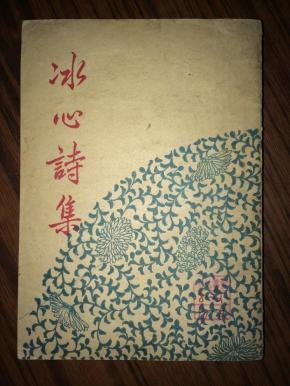 冰心詩集